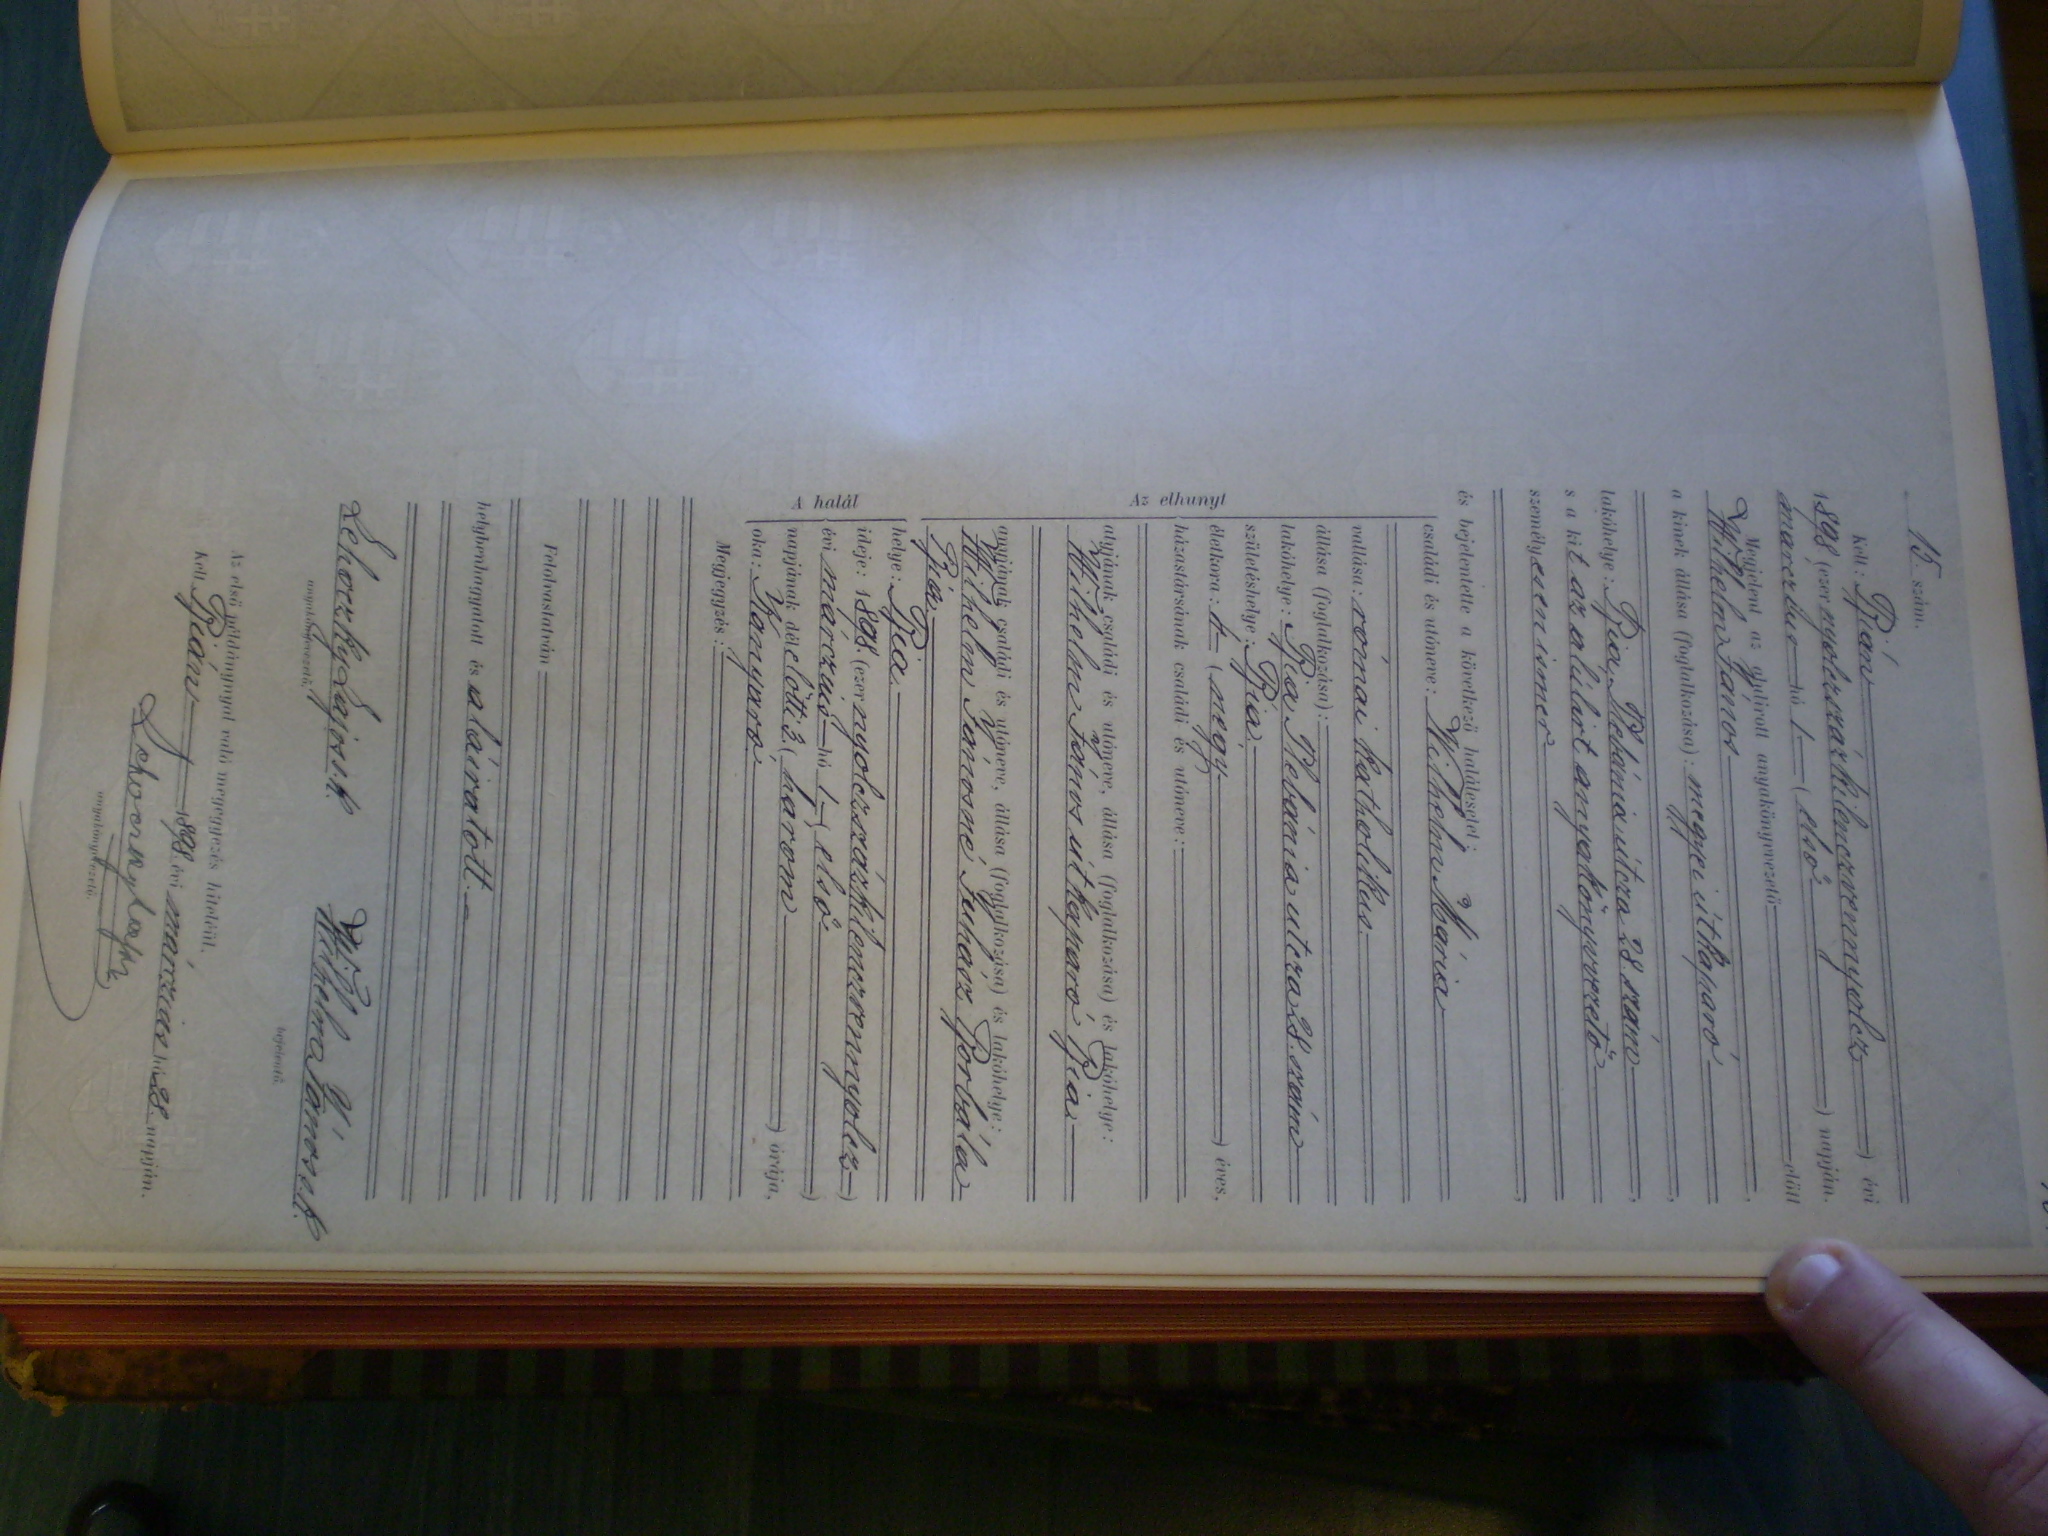 15. szám.
Kelt: Bián
1898 (ezer nyolczszázkilenczvennyolcz) évi
márczius hó 1 (első) napján.
Megjelent az alulirott anyakönyvvezető előtt
Wilhelm János,
a kinek állása (foglalkozása): megyei útkaparó,
lakóhelye: Bia, Plebánia utcza 28. szám,
s a kit az alulirt anyakönyvvezető
személyesen ismer,
és bejelentette a következő halálesetet:
Az elhunyt
családi és utóneve: Wilhelm Mária
vallása: római katholikus.
állása (foglalkozása):
lakóhelye: Bia Plebánia utcza 28. szám
születéshelye: Bia
életkora: 4 (négy) éves,
házastársának családi és utóneve:
atyjának családi és utóneve, állása (foglalkozása) és lakóhelye:
Wilhelm János útkaparó Bia
anyjának családi és utóneve, állása (foglalkozása) és lakóhelye:
Wilhelm Jánosné Borbála
Bia
A halál
helye: Bia.
ideje: 1898. (ezer nyolczszázkilenczvennyolcz)
évi márczius hó 1 (első)
napjának délelőtti 3. (három) órája,
oka: Kanyaró
Megjegyzés:
Felolvastatván
helybenhagyatott és aláiratott.
Lehoczky Lajos s.k. Wilhelm János s.k.
anyakönyvvezető. bejelentő.
Az első példánynyal való megegyezés hiteléül.
Kelt Bián 1898. évi márczius hó 28. napján.
Lehoczky Lajos
anyakönyvvezető.